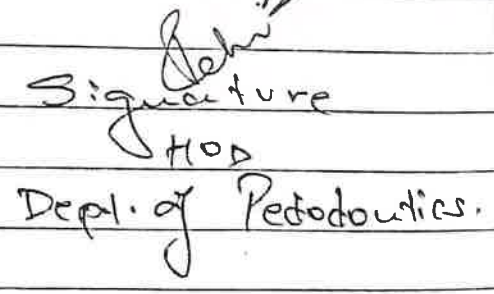 Signature
HOD
Dept. of Pedodontics.